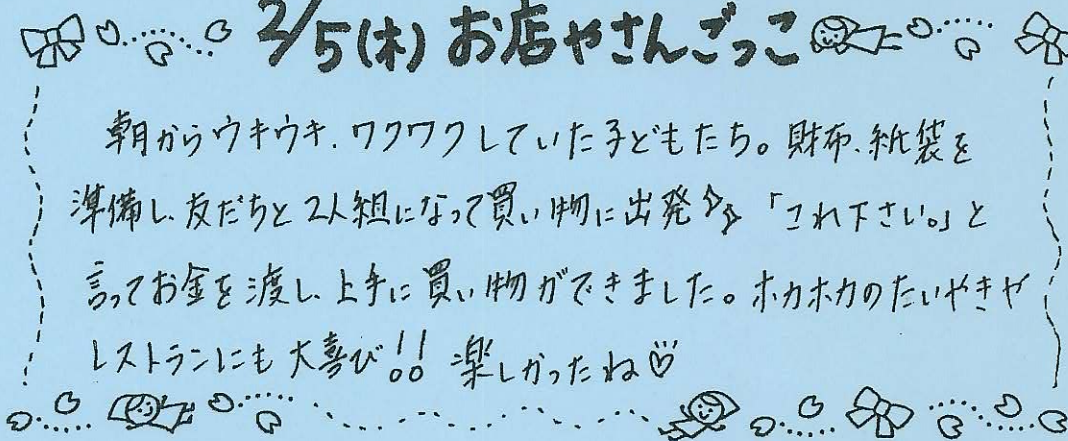 2/5(木) お店やさんごっこ
朝からウキウキ、ワクワクしていた子どもたち。財布、紙袋を
準備し、友だちと2人組になって買い物に出発♪♪「これ下さい。」と
言ってお金を渡し、上手に買い物ができました。ホカホカのたいやきや
レストランにも大喜び!! 楽しかったね♡